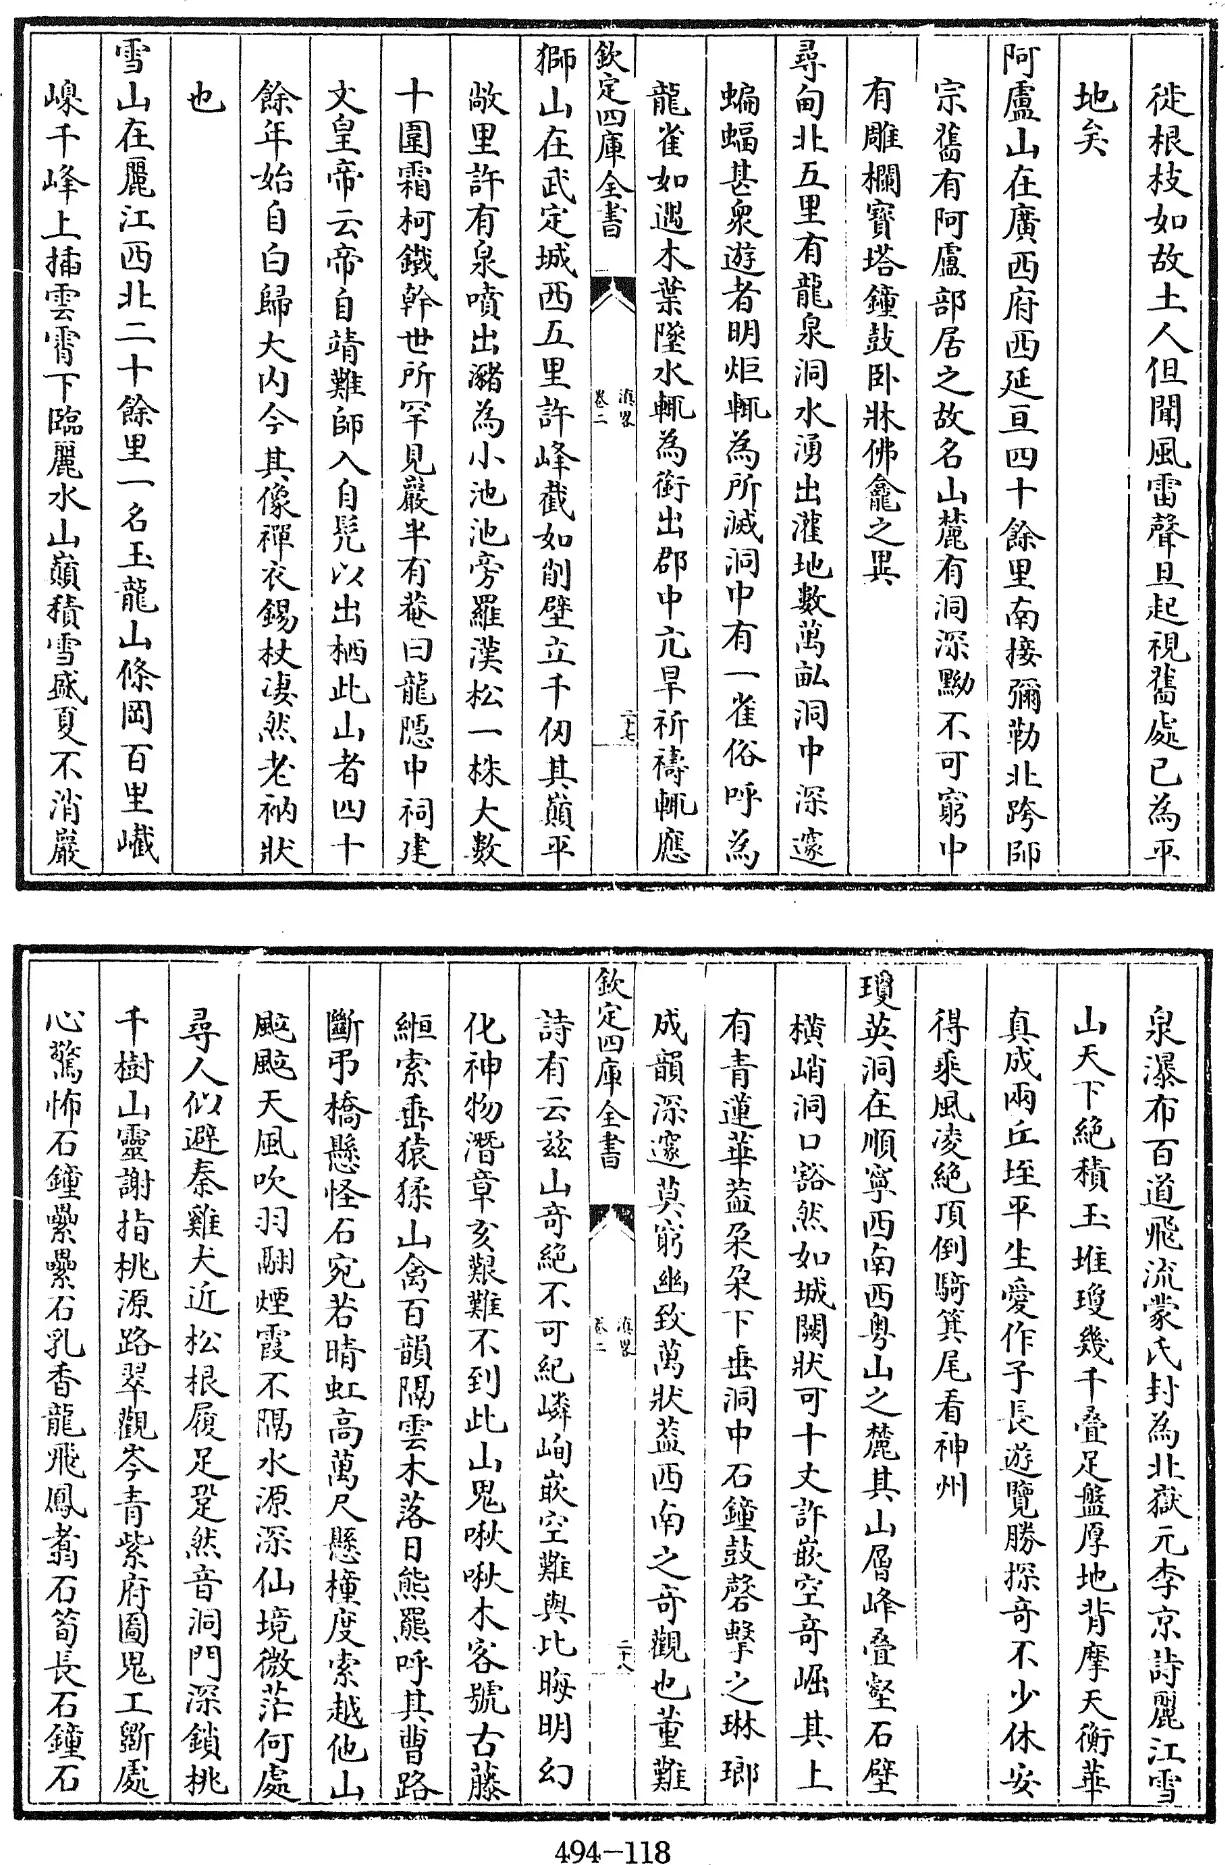 徙根枝如故土人但聞風雷聲旦起視舊處已為平
地矣
阿盧山在廣西府西延亘四十餘里南接彌勒北跨師
宗舊有阿盧部居之故名山麓有洞深黝不可窮中
有雕欄寶塔鐘鼓卧牀佛龕之異
尋甸北五里有龍泉洞水湧出灌地數萬畝洞中深邃
蝙蝠甚衆遊者明炬輒為所滅洞中有一雀俗呼為
龍雀如遇木葉墜水輒為銜出郡中亢旱祈禱輒應
欽定四庫全書
滇畧
卷二
二十七
獅山在武定城西五里許峰截如削壁立千仞其巔平
敞里許有泉噴出瀦為小池池旁羅漢松一株大數
十圍霜柯鐵幹世所罕見巖半有菴曰龍隱中祠建
文皇帝云帝自靖難師入自髠以出栖此山者四十
餘年始自白歸大内今其像禪衣錫杖凄然老衲狀
也
雪山在麗江西北二十餘里一名玉龍山條岡百里巀
嵲千峰上插雲霄下臨麗水山巔積雪盛夏不消巖
泉瀑布百道飛流蒙氏封為北嶽元李京詩麗江雪
山天下絶積玉堆瓊幾千叠足盤厚地背摩天衡華
真成兩丘垤平生愛作子長遊覽勝探奇不少休安
得乘風凌絶頂倒騎箕尾看神州
瓊英洞在順寧西南西粤山之麓其山層峰叠壑石壁
橫峭洞口豁然如城闕狀可十丈許嵌空奇崛其上
有青蓮華葢朶朶下垂洞中石鐘鼓磬擊之琳瑯
成韻深邃莫窮幽致萬狀葢西南之奇觀也董難
欽定四庫全書
滇畧
卷二
二十八
詩有云兹山奇絶不可紀嶙峋嵌空難與比晦明幻
化神物潛章亥艱難不到此山鬼啾啾木客號古藤
縆索垂猿猱山禽百韻隔雲木落日熊羆呼其曹路
斷弔橋懸怪石宛若晴虹高萬尺懸橦度索越他山
颸颸天風吹羽翮煙霞不隔水源深仙境微茫何處
尋人似避秦雞犬近松根履足跫然音洞門深鎖桃
千樹山靈謝指桃源路翠觀岑青紫府圖鬼工斵處
心驚怖石鐘纍纍石乳香龍飛鳳翥石筍長石鐘石
494-118